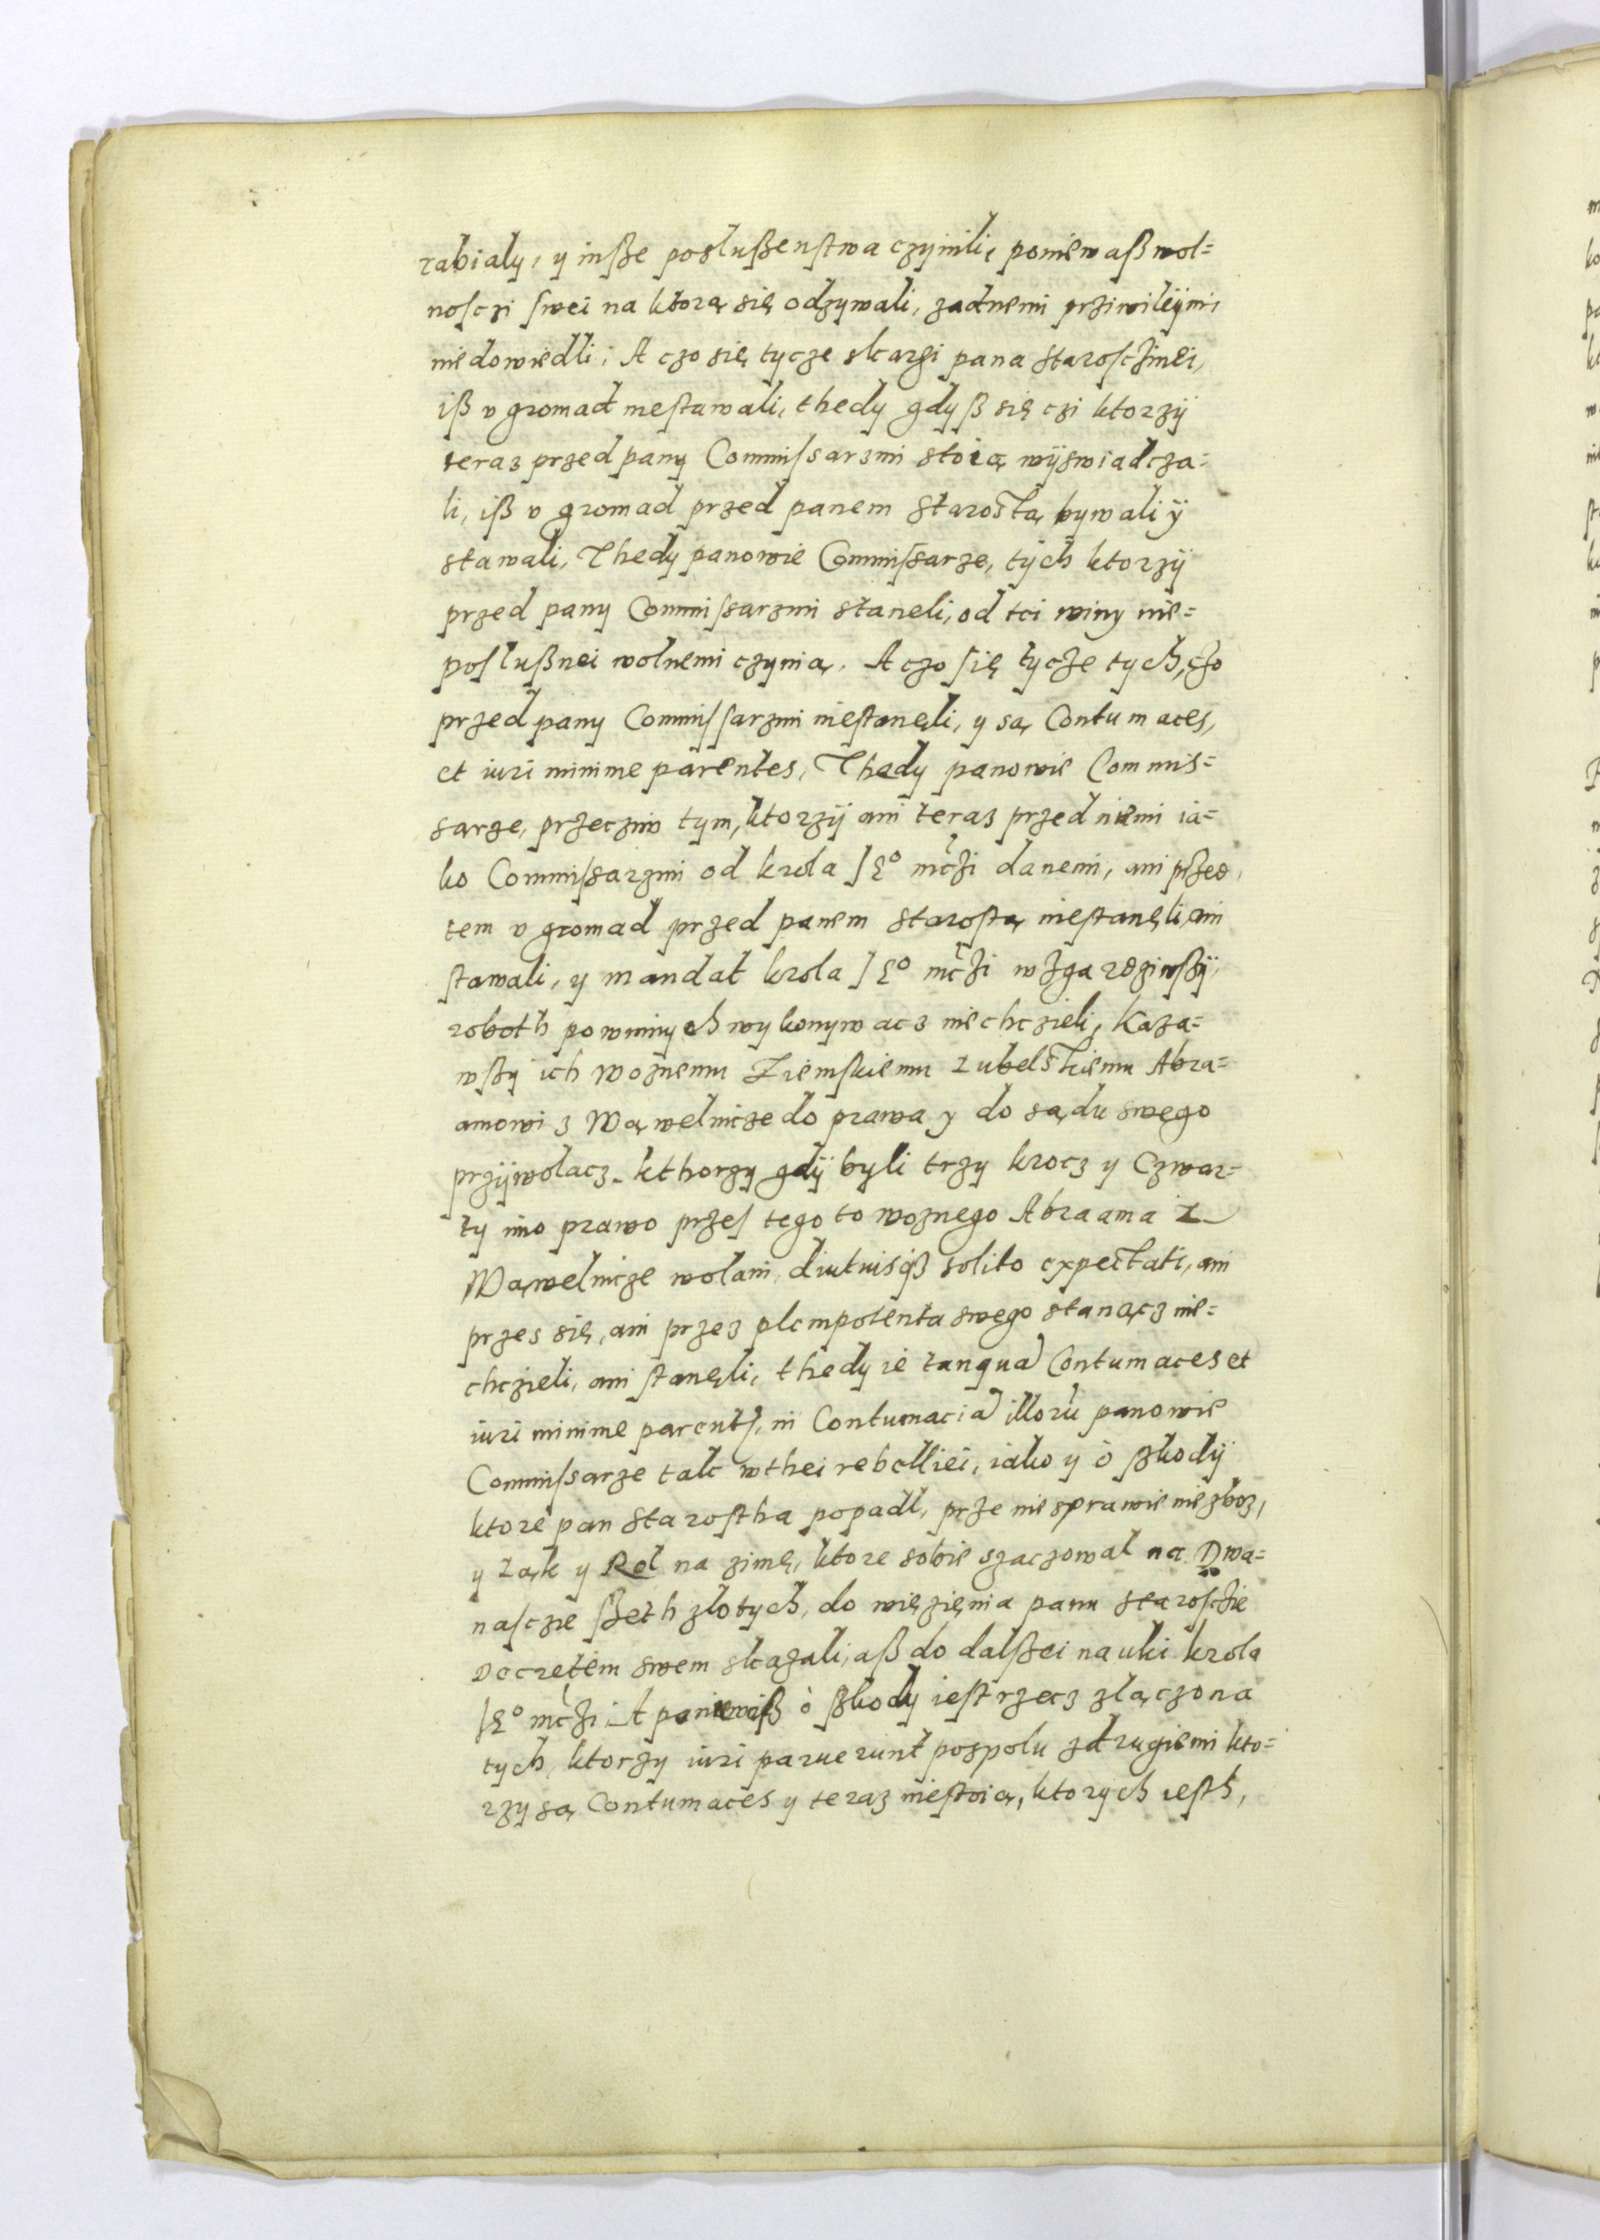 rabialy, y insze posłuszenstwa czynili, poniewasz wol=
nosczi swei na ktorą się odzywali, zadnemi prziwileijmi,
niedowiedli; A czo się tycze skargi pana staroscinei,
isz v gromad niestawali, thedy gdysz się czi ktorzÿ
teraz przed pany Commissarzmi stoią wÿswiadcza=
li, isz v gromad przed panem starostą bywali ÿ
stawali, Thedy panowie Commissarze, tych ktorzÿ
przed pany Commissarzmi staneli, od tei winy nie=
posłusznei wolnemi czynią. A czo się tycze tych, czo
przed pany Commissarzmi niestanęli, y są Contumaces,
et iuri minime parentes, Thedy panowie Commis=
sarze, przeczmw tym, ktorzÿ ani teraz przed niemi ia=
ko Commissarzmi od krola JE° mczi danemi, ani przed
tem v gromad przed panem starostą niestanęli, ani
stawali, y mandat krola JE° mczi wzgardziwszÿ,
roboth powinnych wykonywacz niechczieli, Kaza=
wszy ich woznemu Ziemskiemu Lubelskiemu Abra=
amowi z Wąwelnicze do prawa y do sądu swego
przÿwołacz. kthorzy gdÿ byli trzy krocz y Czwar=
ty imo prawo przes tego to woznego Abraama z
Wąwelnicze wołani, diutiusq3 solito expectati, ani
przes się, ani przez plempotenta swego stanącz nie=
chczieli, ani stanęli, thedy ie tanquā Contumaces et
iuri minime parents, in Contumaciā illorū panowie
Commissarze tak wthei rebelliei, iako y ò szkodÿ
ktore pan starostha popadł, prze niesprawienie zboz,
y Ląk y Rol na zimę, ktore sobie szaczował na Dwa=
nasczie szeth złotych, do więzięnia panu starosczie
Decretem swem skazali, asz do dalszei nauki krola
JE° mczi. A poniewasz ò szkody iest rzecz złączona
tych, ktorzy iuri paruerunt pospolu zdrugiemi kto=
rzy są Contumaces y teraz niestoią, ktorych iesth,